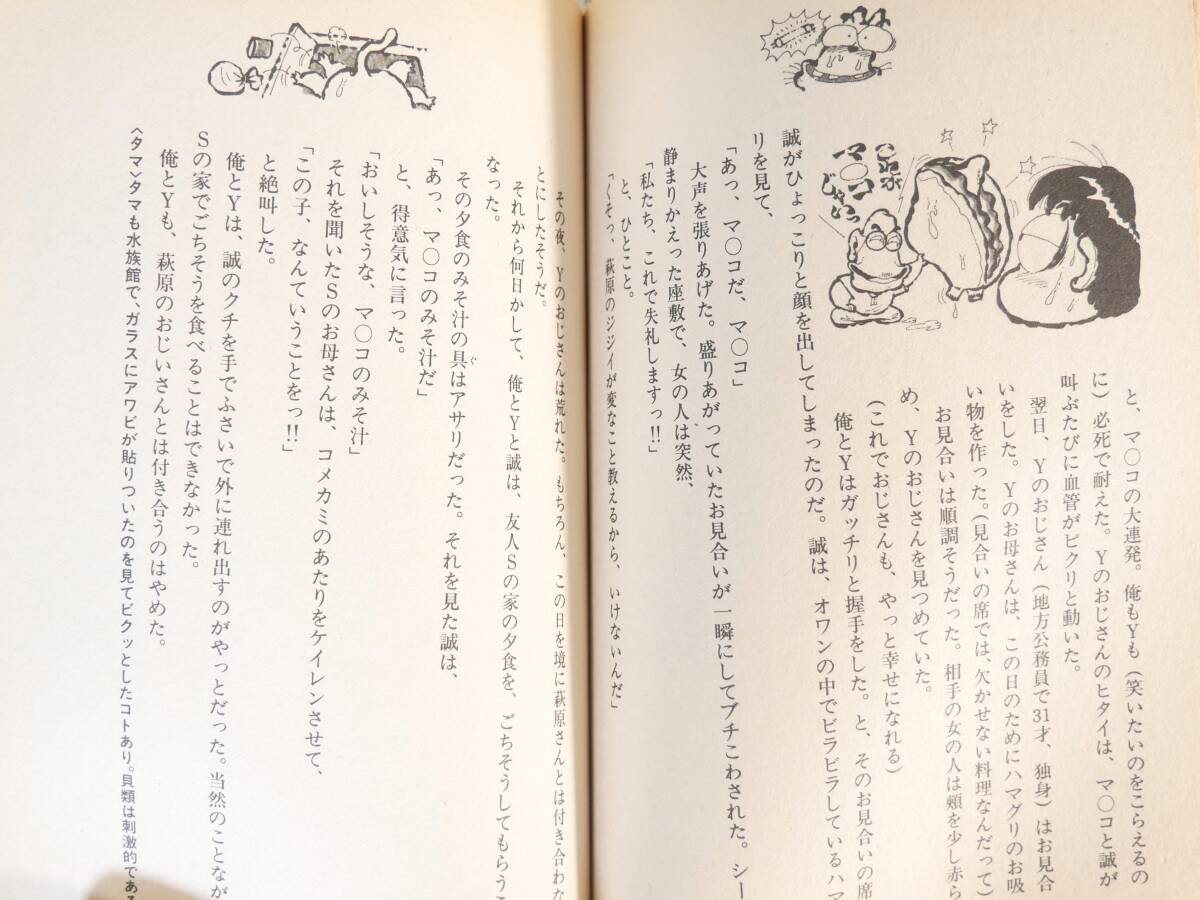 これは
マ〇コ
じゃいっ
と、マ〇コの大連発。俺もYも（笑いたいのをこらえるの
に）必死で耐えた。Yのおじさんのヒタイは、マ〇コと誠が
叫ぶたびに血管がピクリと動いた。
翌日、Yのおじさん（地方公務員で31才、独身）はお見合
いをした。Yのお母さんは、この日のためにハマグリのお吸
い物を作った。（見合いの席では、欠かせない料理なんだって）
お見合いは順調そうだった。相手の女の人は頬を少し赤ら
め、Yのおじさんを見つめていた。
（これでおじさんも、やっと幸せになれる）
俺とYはガッチリと握手をした。と、そのお見合いの席
誠がひょっこりと顔を出してしまったのだ。誠は、オワンの中でビラビラしているハマ
リを見て、
「あっ、マ〇コだ、マ〇コ」
大声を張りあげた。盛りあがっていたお見合いが一瞬にしてブチこわされた。シー
静まりかえった座敷で、女の人は突然、
「私たち、これで失礼しますっ!!」
と、ひとこと。
「くそっ、萩原のジジイが変なこと教えるから、いけないんだ」
その夜、Yのおじさんは荒れた。もちろん、この日を境に萩原さんとは付き合わな
とにしたそうだ。
それから何日かして、俺とYと誠は、友人Sの家の夕食を、ごちそうしてもらうこ
なった。
その夕食のみそ汁の具はアサリだった。それを見た誠は、
ぐ
「あっ、マ〇コのみそ汁だ」
と、得意気に言った。
「おいしそうな、マ〇コのみそ汁」
それを聞いたSのお母さんは、コメカミのあたりをケイレンさせて、
「この子、なんていうことをっ!!」
と絶叫した。
俺とYは、誠のクチを手でふさいで外に連れ出すのがやっとだった。当然のことなが
Sの家でごちそうを食べることはできなかった。
俺とYも、萩原のおじいさんとは付き合うのはやめた。
〈タマ〉タマも水族館で、ガラスにアワビが貼りついたのを見てビクッとしたコトあり。貝類は刺激的である